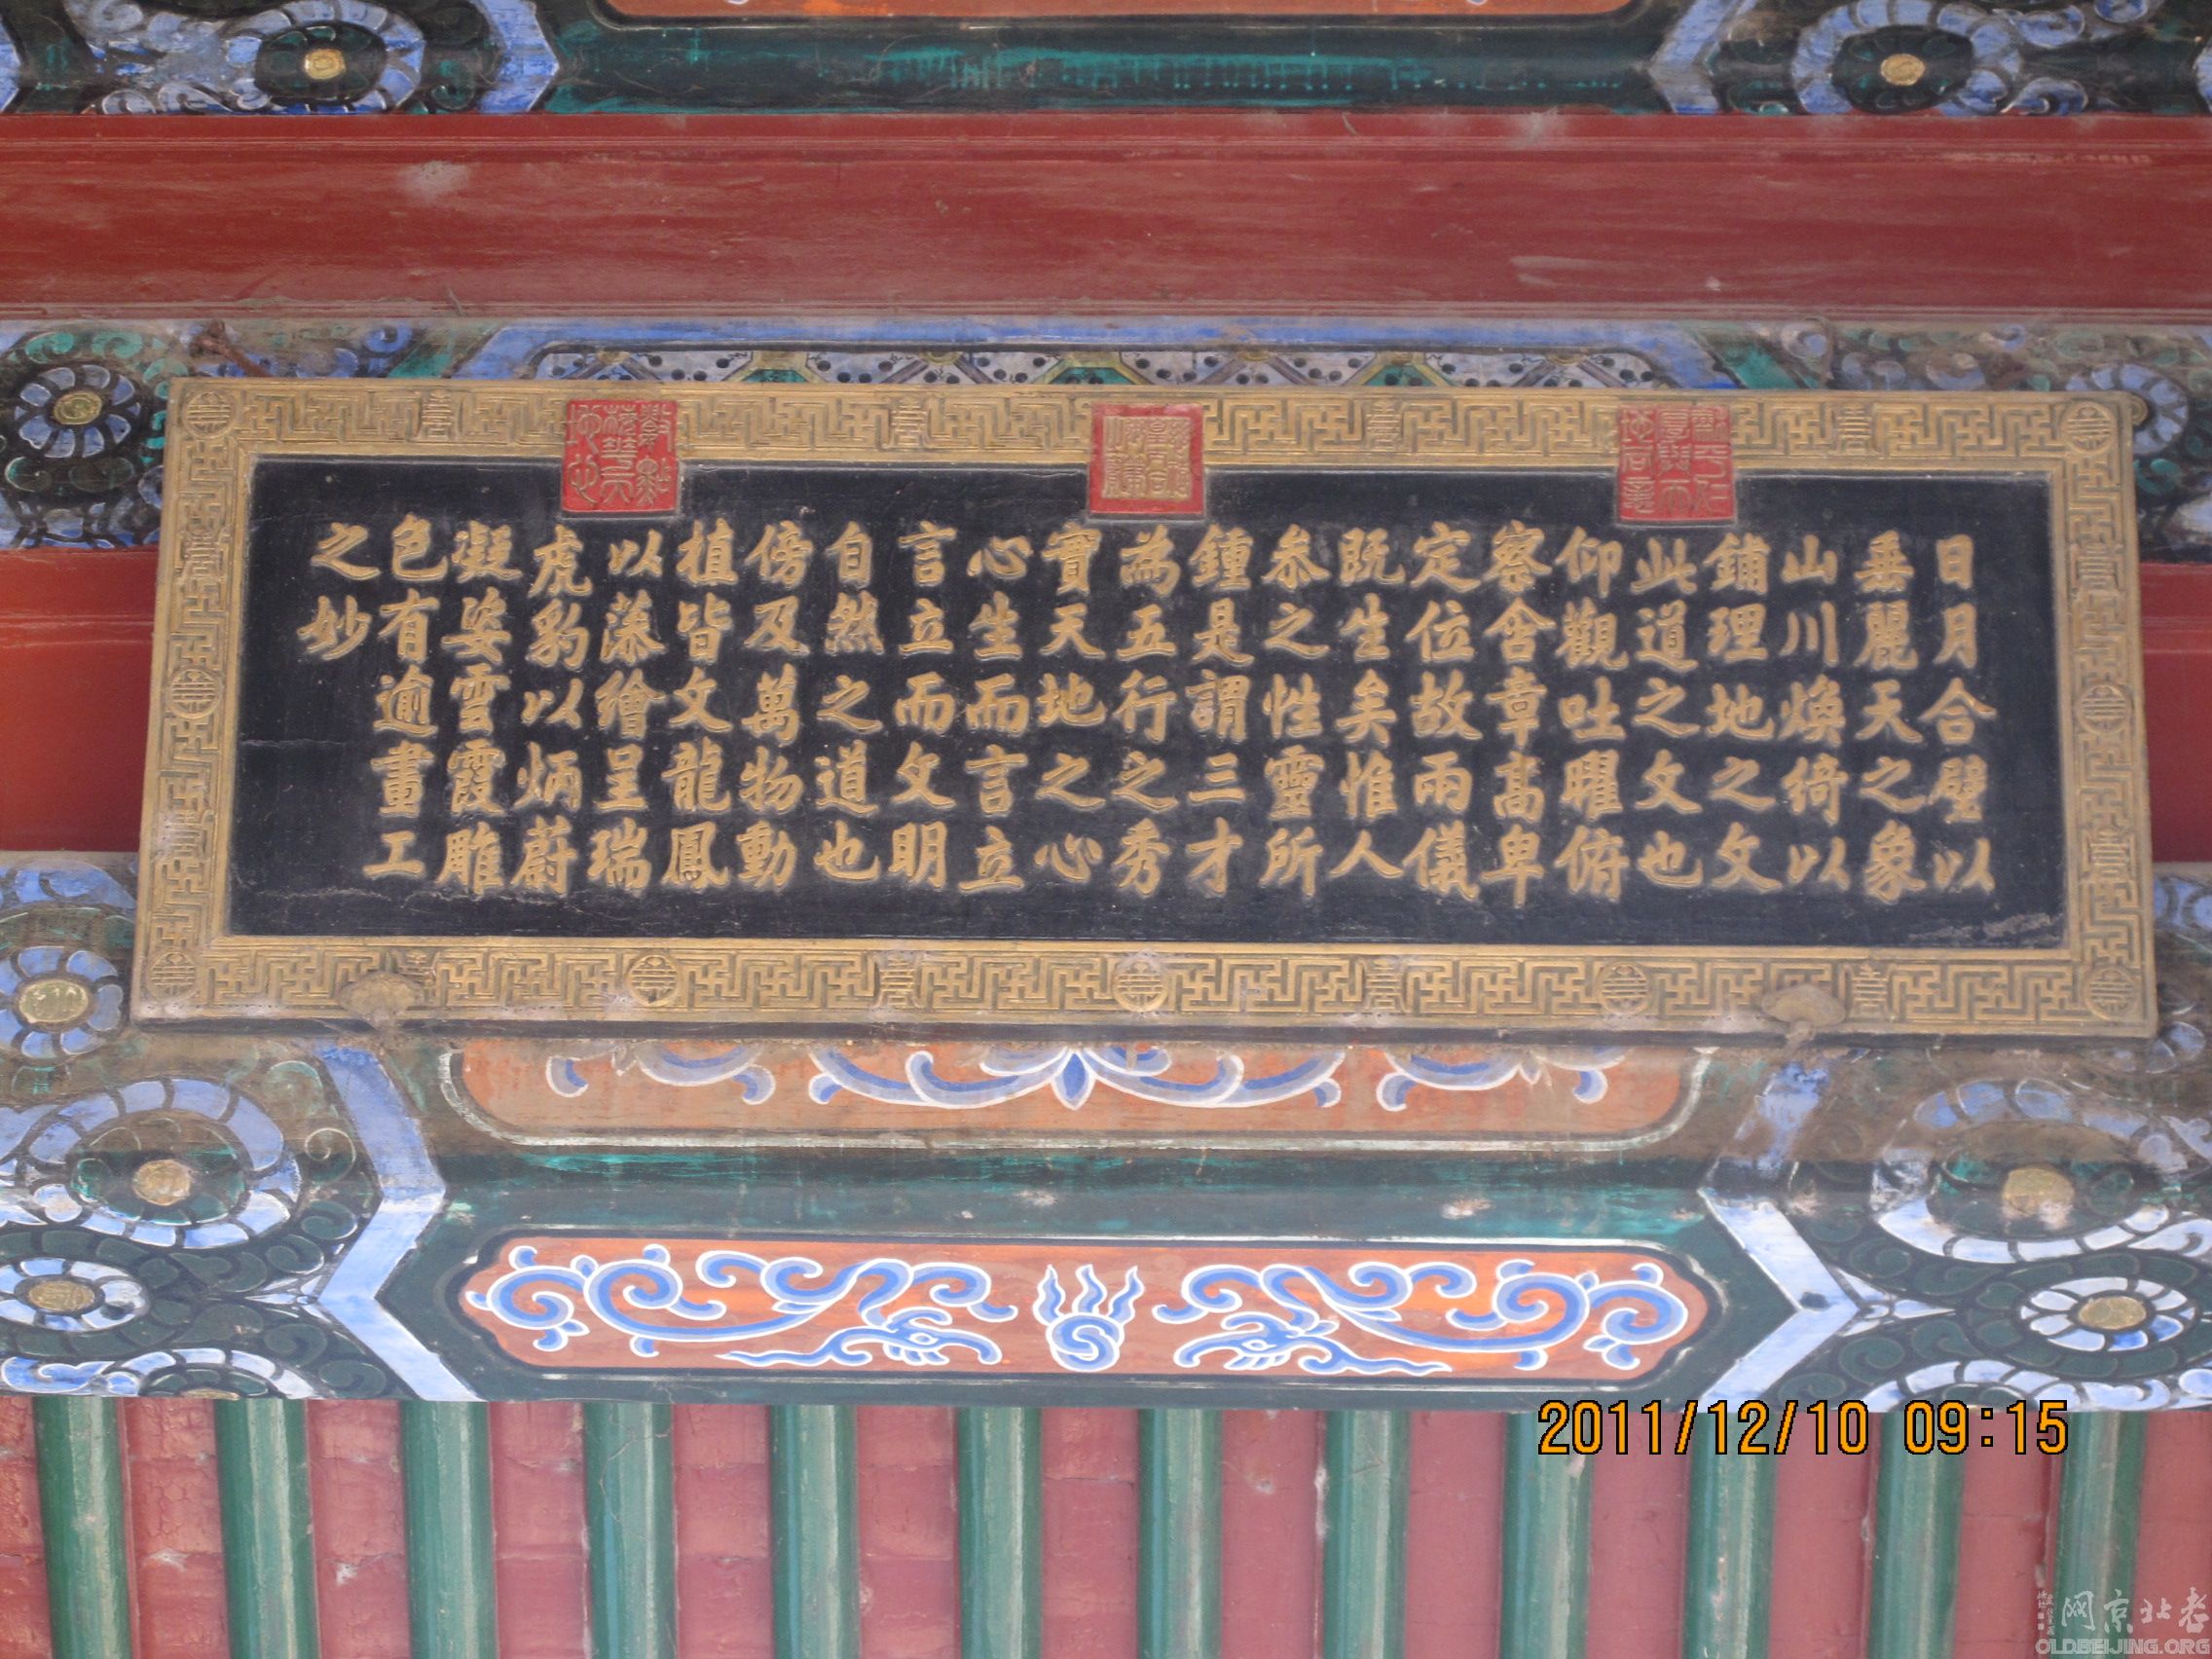 日月合璧以
垂麗天之象
山川煥綺以
鋪理地之文
此道之文也
仰觀吐曜俯
察含章高卑
定位故兩儀
既生矣惟人
叅之性靈所
鍾是謂三才
為五行之秀
實天地之心
心生而言立
言立而文明
自然之道也
傍及萬物動
植皆文龍鳳
以藻繪呈瑞
虎豹以炳蔚
凝姿雲霞雕
色有逾畫工
之妙
2011/12/10 09:15
老北京网
OLDBEIJING.ORG